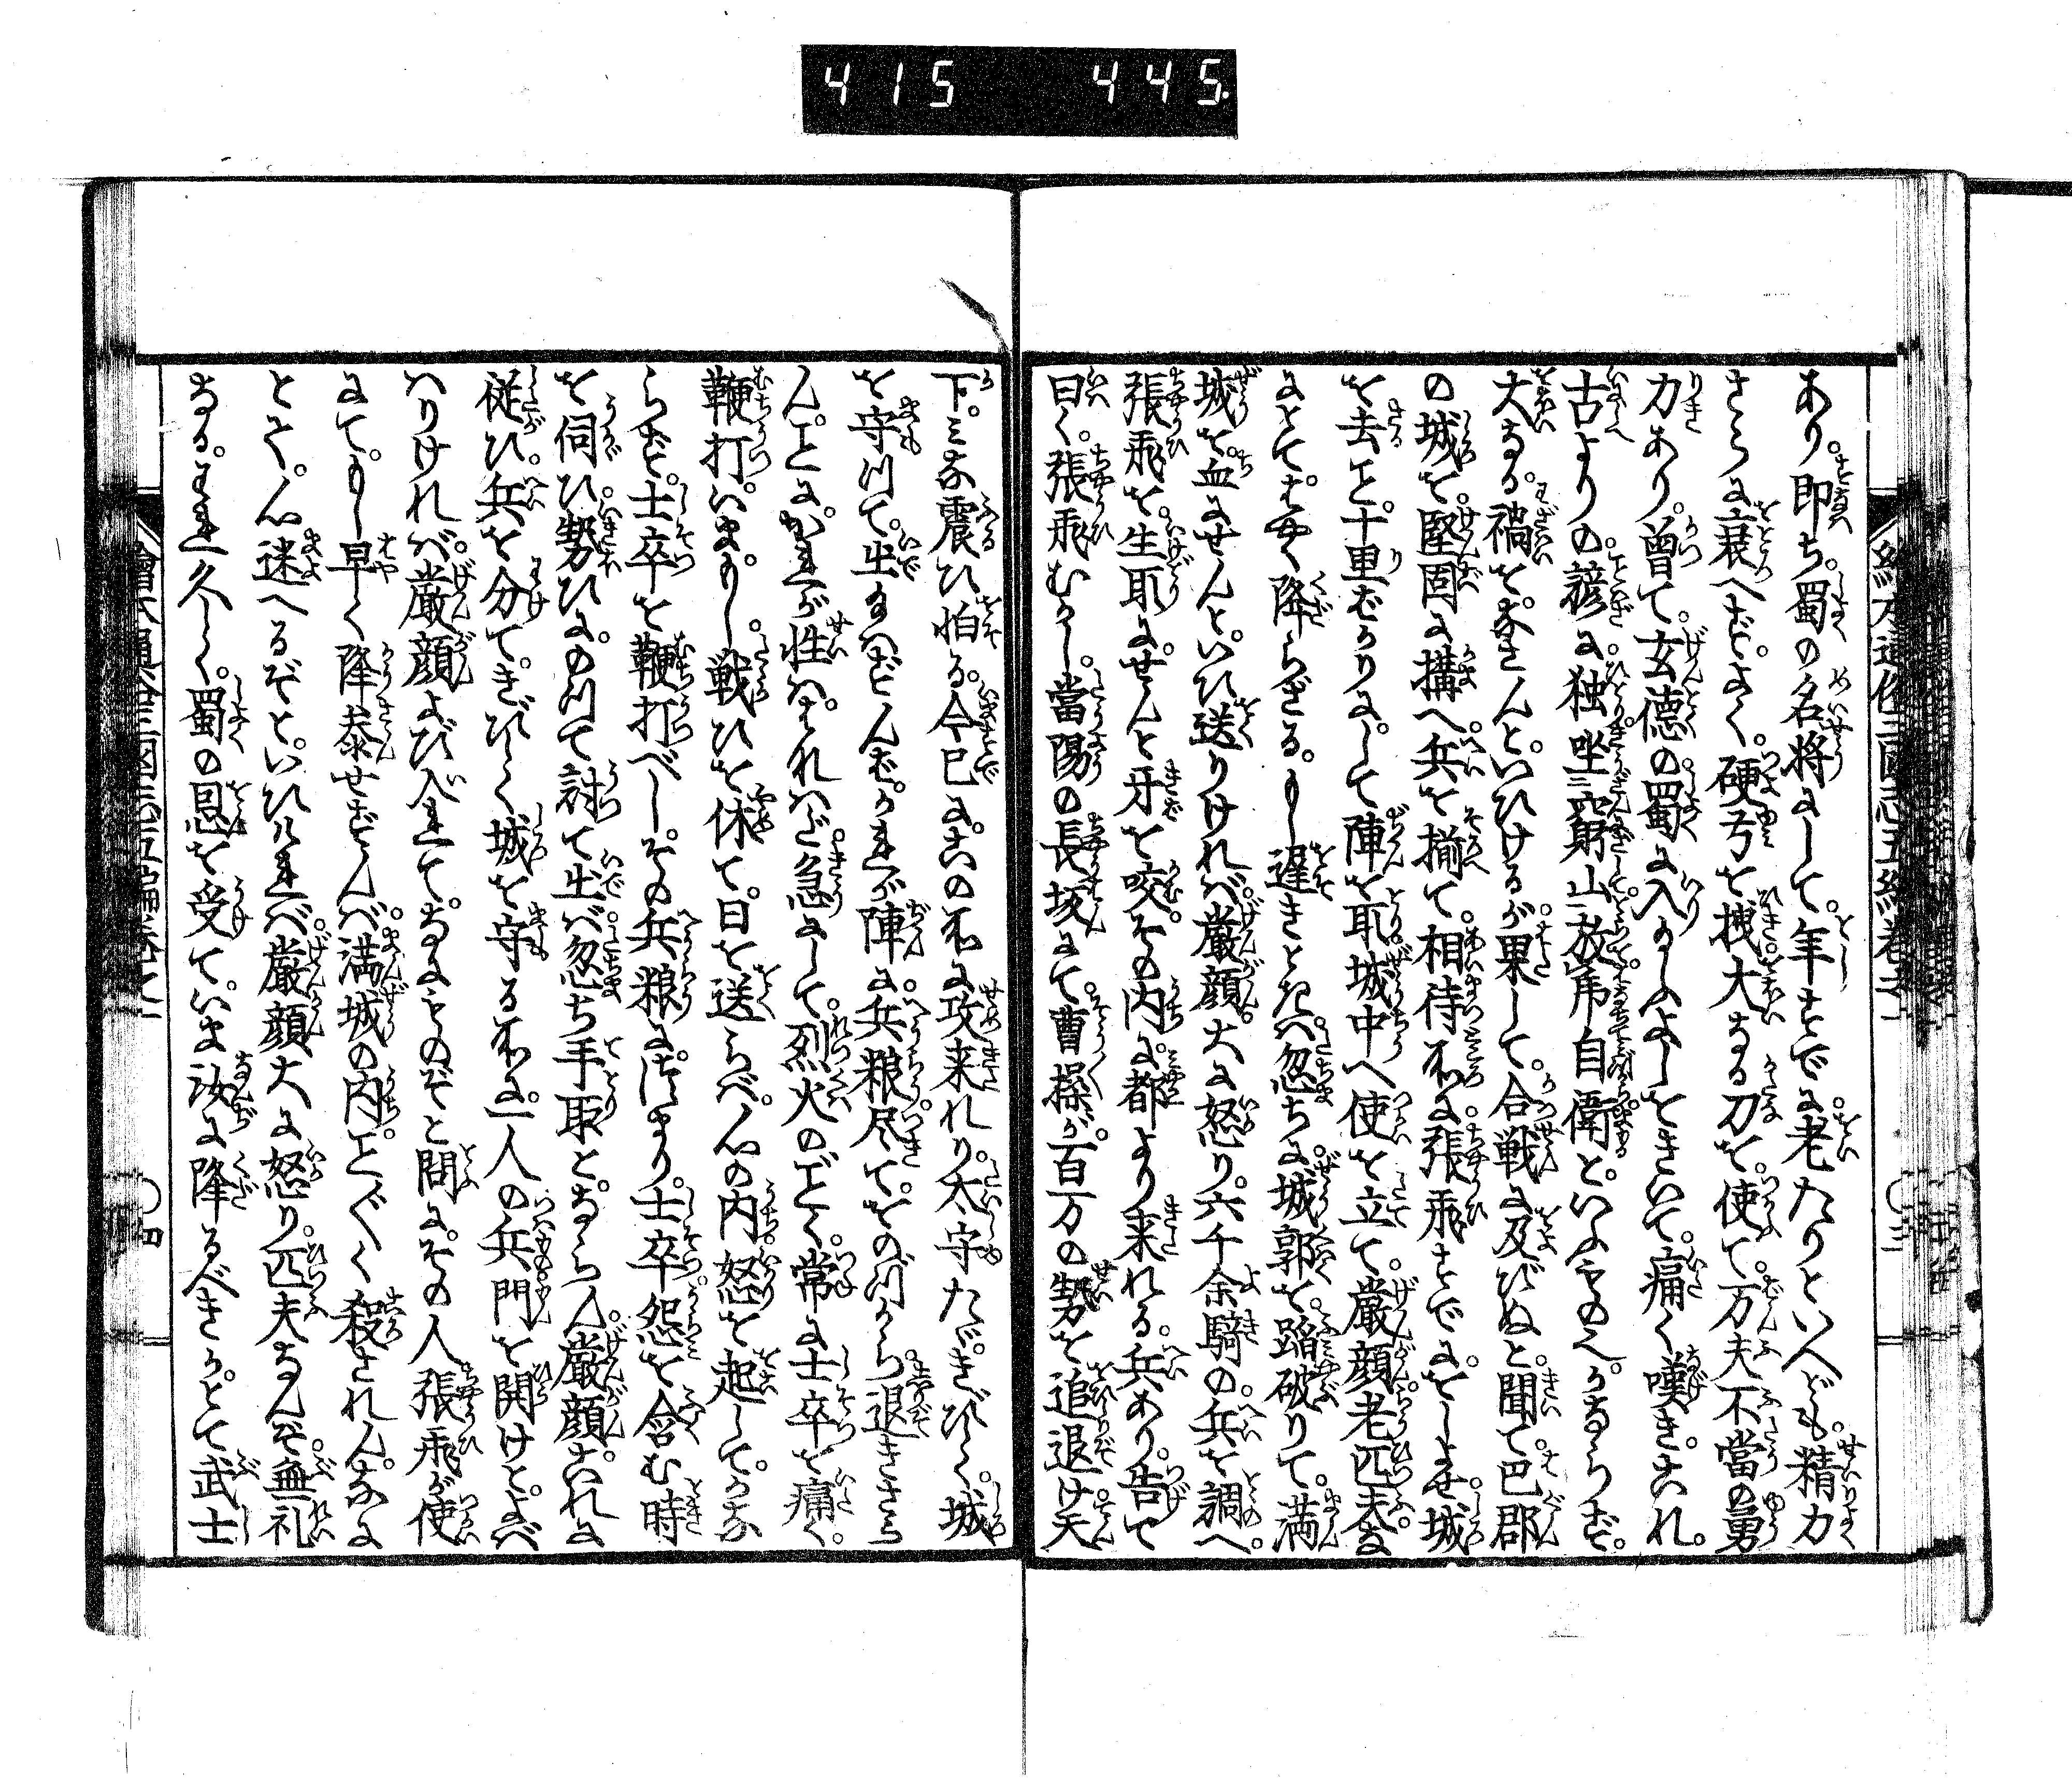 415 445.
あり。即ち蜀の名将にして。年までに老たりといへども。精力
さらに衰へず。よく。硬弓を拽。大なる刀を。使て。万夫不當の勇
力あり。曾て。玄徳の蜀に入りしよしをきいて。痛く嘆き。これ。
古よりの諺に。独坐窮山放虎自衛と。いふものへ。かならず。
大なる禍をなさんと。いひけるが。果して。合戦に及びぬと聞て。巴郡
の城を。堅固に搆へ。兵を揃て。相待所に。張飛までに。をしよせ。城
を去こと。十里ばかりにして陣を取。城中へ使を立て。厳顔老匹夫な
にとて。はやく降らざる。もし遅きときハ。忽ちに。城郭を。蹈破りて。満
城を。血にせんと。いひ送りけれバ。厳顔。大に怒り。六千余騎の。兵を調へ。
張飛を。生取に。せんと。牙を咬。その内に。都より来れる。兵あり。告て
曰く。張飛むかし。當陽の長坂にて。曹操が。百万の勢を追退け。天
下。ミな震ひ怕る。今已に。此の所に。攻来れり。太守たゞきびしく。城
を守りて。出給ハざらんにハ。かれが陣に。兵粮尽て。をのづから。退きさら
んこと。かれが性ハ。はれハだ。急にして。烈火のごとく。常に士卒を痛く。
鞭打。いまもし戦ひを休て。日を送らバ。心の内。怒を起して。かな
らず。士卒を鞭打べし。その兵粮に。つまり。士卒。怨を含む時
を伺ひ。勢ひにのりて討て出バ。忽ち手取となさん。厳顔これに
従ひ。兵を分て。きびしく城を守る所に。一人の兵。門を開けと。よバ
ハりけれバ。厳顔よび入れて。なにものぞと問に。その人張飛が使
にて。もし早く降参せずんバ。満城の内。ことごとく殺されん。なに
とて。心迷へるぞと。いひけれバ。厳顔大に怒り。匹夫なんぞ。無礼
なる。われ久しく。蜀の恩を受て。いま汝に降るべきかとて武士